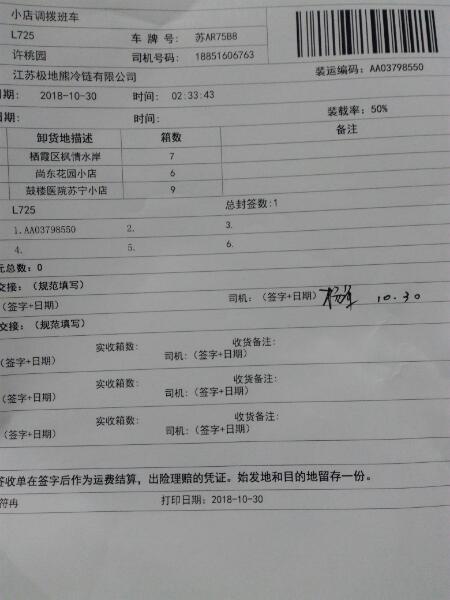 小店调拨班车
L725 车 牌 号: 苏AR75B8
许桃园 司机号码: 18851606763
江苏极地熊冷链有限公司 装运编码: AA03798550
日期: 2018-10-30 时间: 02:33:43
日期: 时间: 装载率: 50%
卸货地描述 箱数 备注
栖霞区枫情水岸 7
尚东花园小店 6
鼓楼医院苏宁小店 9
L725 总封签数:1
1.AA03798550 2. 3.
4. 5. 6.
元总数: 0
交接: (规范填写)
(签字+日期) 司机: (签字+日期) 10.30
交接: (规范填写)
实收箱数: 收货备注:
(签字+日期) 司机: (签字+日期)
实收箱数: 收货备注:
(签字+日期) 司机: (签字+日期)
实收箱数: 收货备注:
(签字+日期) 司机: (签字+日期)
签收单在签字后作为运费结算，出险理赔的凭证。始发地和目的地留存一份。
符冉 打印日期: 2018-10-30